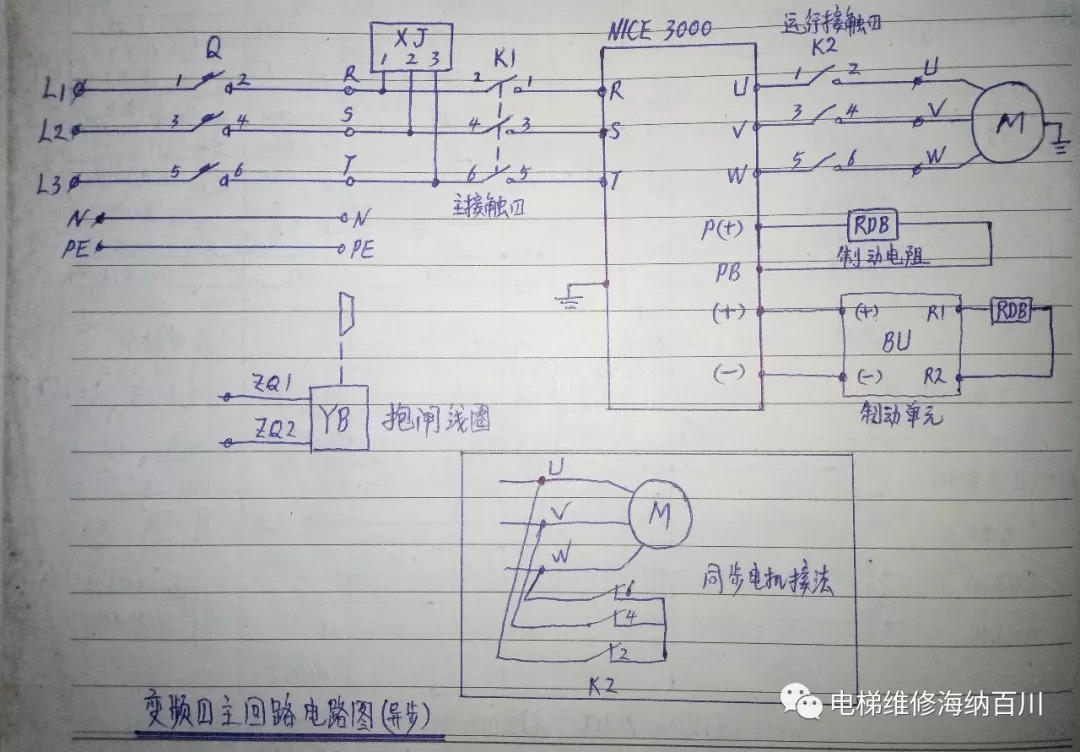 XJ
1 2 3
NICE 3000
运行接触口
K2
Q
K1
L1 1 2 R 2 1 R
U 1 2 U
L2 3 4 S 4 3 S
V 3 4 V
M
L3 5 6 T 6 5 T
W 5 6 W
主接触口
N N
PE PE
P(+) RDB
制动电阻
PB
(+) (+) R1 RDB
BU
(-) (-) R2
制动单元
ZQ1
ZQ2
YB 抱闸线圈
U
V
W
M
6
4
2
K2
同步电机接法
变频口主回路电路图(异步)
电梯维修海纳百川